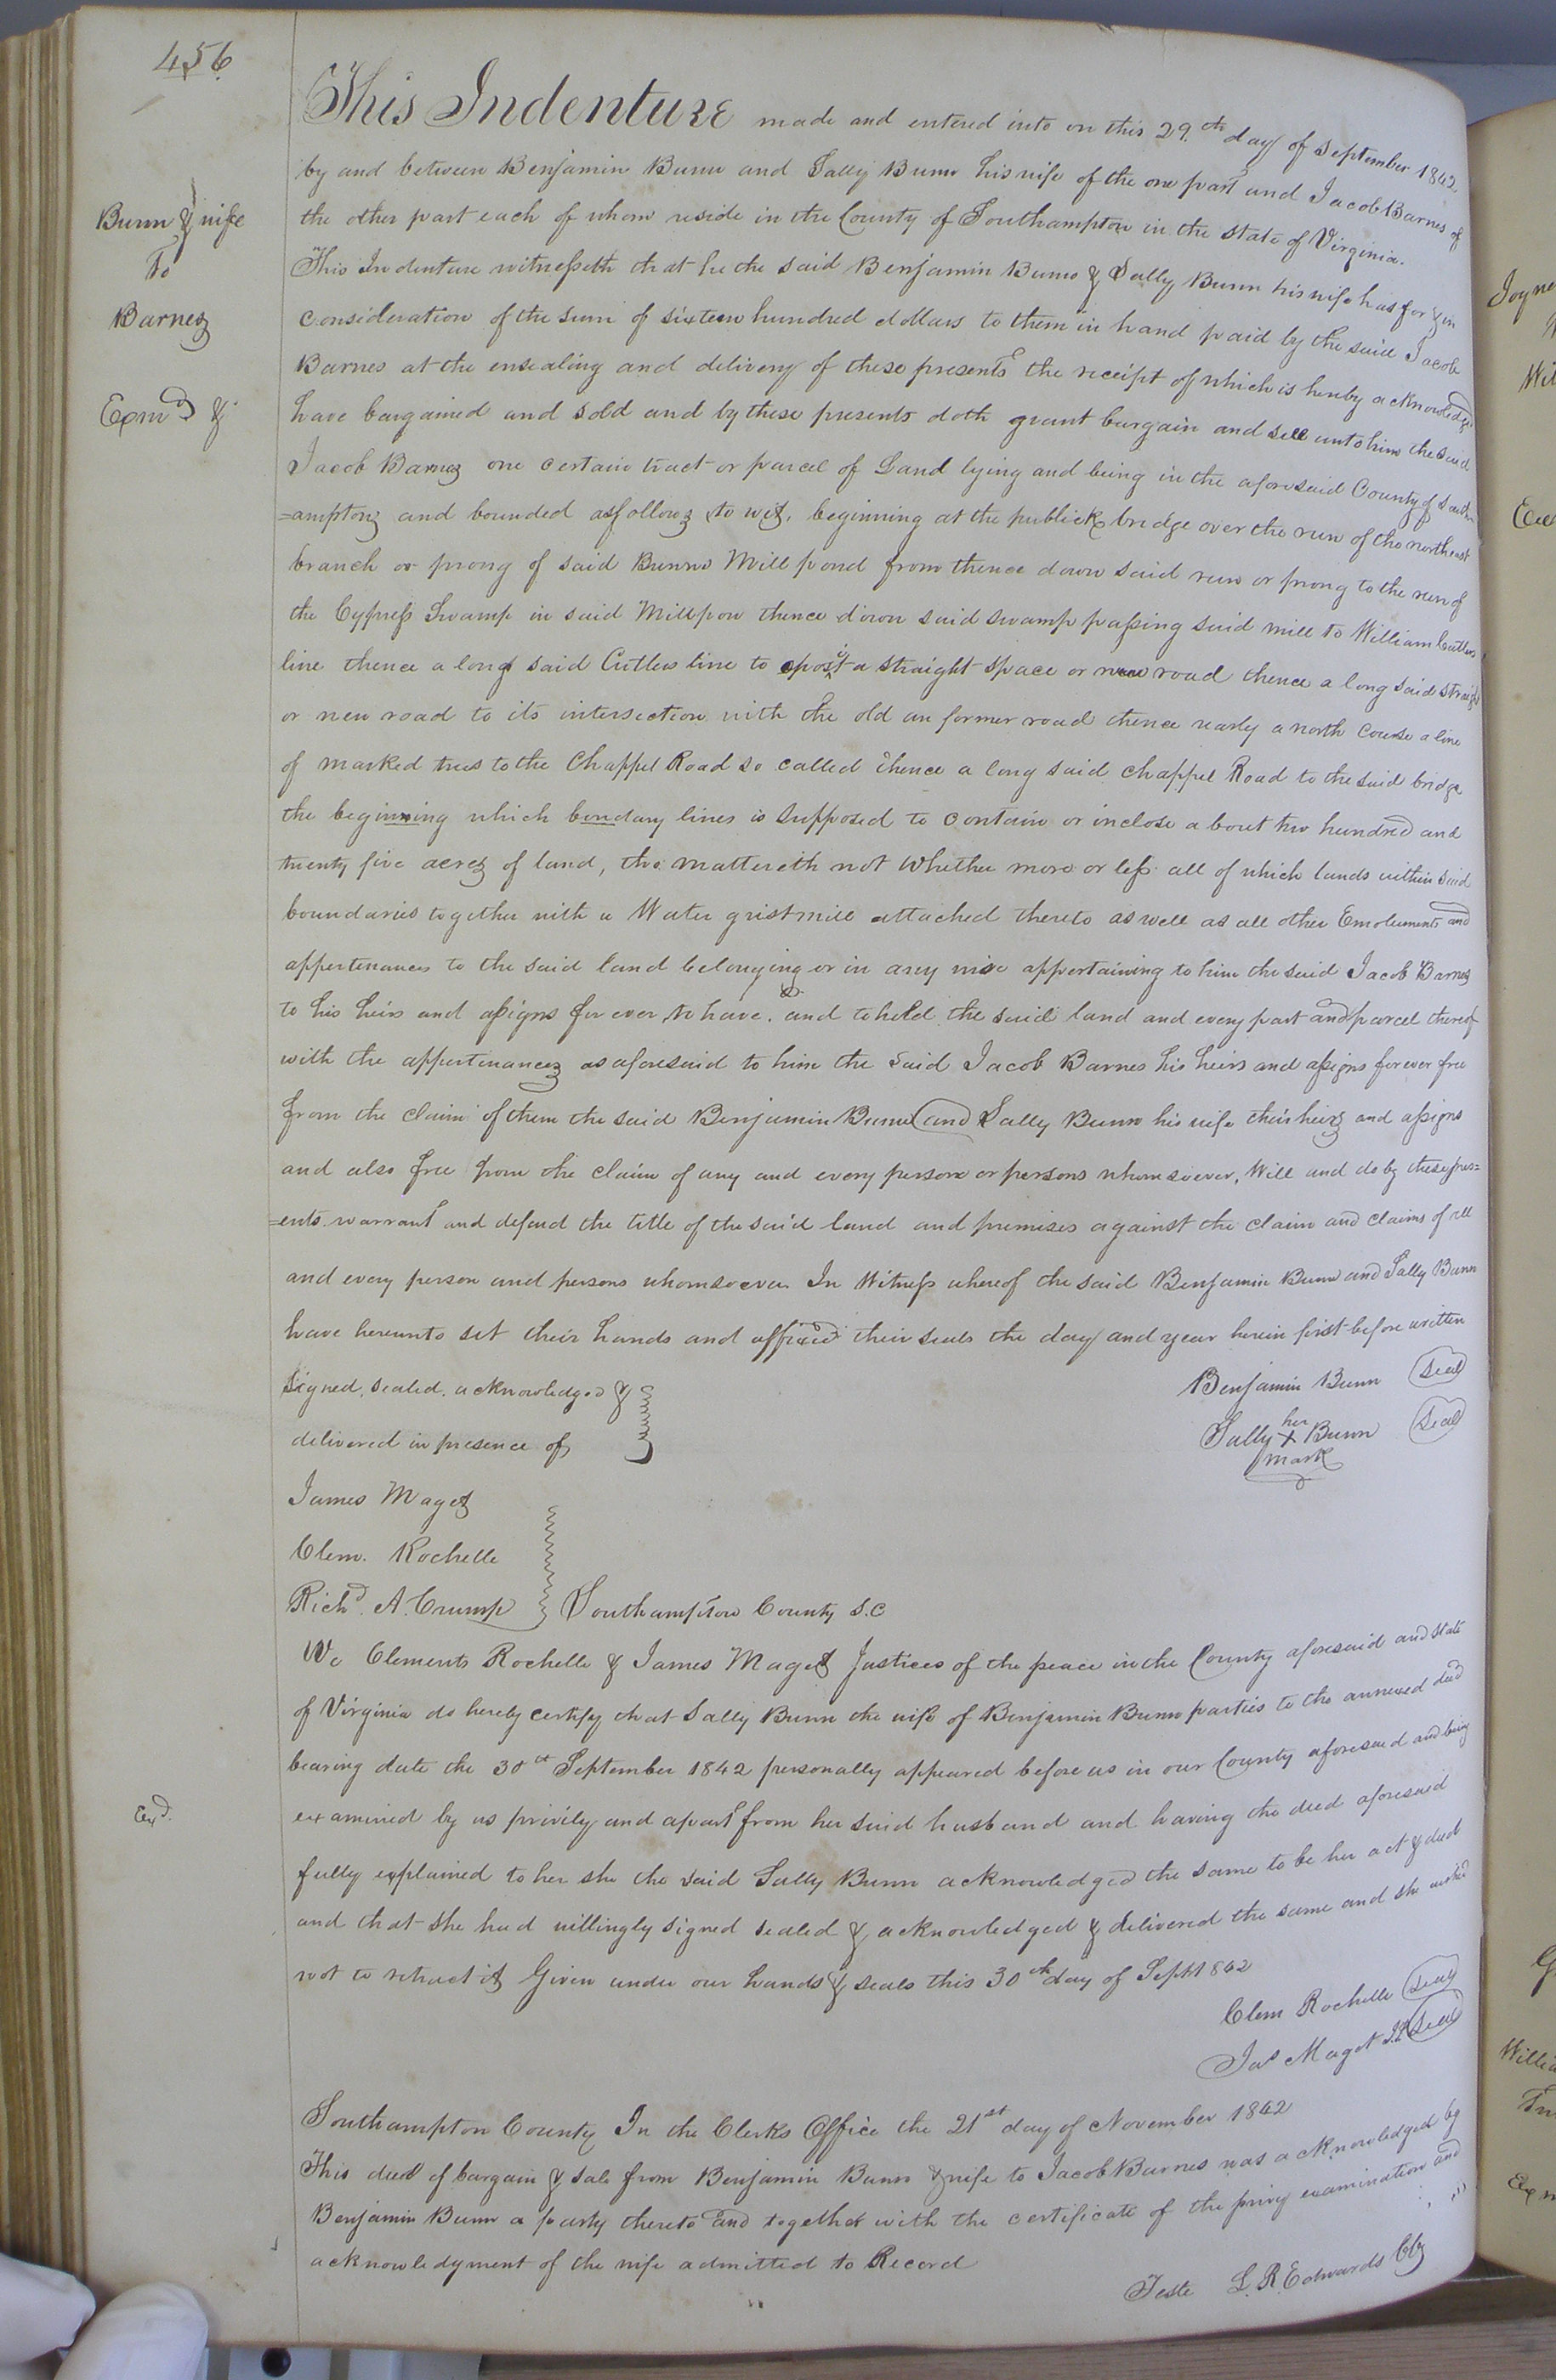 456
This Indenture made and entered into on this 29.th day of September 1842
by and between Benjamin Bunn and Sally Bunn his wife of the one part and Jacob Barnes of
the other part each of whom reside in the County of Southampton in the State of Virginia.
This Indenture witnesseth that he the said Benjamin Bunn & Sally Bunn his wife has for & in
consideration of the sum of sixteen hundred dollars to them in hand paid by the said Jacob
Barnes at the ensealing and delivery of these presents the receipt of which is hereby acknowledged
have bargained and sold and by these presents doth grant bargain and sell unto him the said
Jacob Barnes one certain tract or parcel of Land lying and being in the aforesaid County of South
=ampton and bounded as follows to wit, beginning at the publick bridge over the run of the north east
branch or prong of said Bunns Mill pond from thence down said run or prong to the run of
the Cypress Swamp in said Millpon thence down said swamp passing said mill to William Cutlers
line thence a long said Cutlers line to a post a straight space or new road thence a long said straight
or new road to its intersection with the old an former road thence nearly a north course a line
of marked trees to the Chappel Road so called thence a long said chappel Road to the said bridge
the beginning which bondary lines is supposed to contain or inclose about two hundred and
twenty five acres of land, tho. mattereth not whether more or less all of which lands within said
boundaries together with a Water gristmill attached thereto as well as all other Emoluments and
appertenances to the said land belonging or in any wise appertaining to him the said Jacob Barnes
to his heirs and assigns for ever, to have. and to hold the said land and every part and parcel thereof
with the appertinances as aforesaid to him the said Jacob Barnes his heirs and assigns forever free
from the claim of them the said Benjamin Bunn and Sally Bunn his wife their heirs and assigns
and also free from the claim of any and every person or persons whomsoever, Will and do by these pres=
=ents. warrant and defend the title of the said land and premises against the claim and claims of all
and every person and persons whomsoever In Witness whereof the said Benjamin Bunn and Sally Bunn
have hereunto set their hands and affixed their seals the day and year herein first before written
Signed, sealed, acknowledged &
delivered in presence of
Benjamin Bunn Seal
her
Sally X Bunn Seal
mark
James Maget
Clem. Rochelle
Richd. A. Crump
Southampton County S.C
We Clements Rochelle & James Maget Justices of the peace in the County aforesaid and state
of Virginia do hereby certify that Sally Bunn the wife of Benjamin Bunn parties to the annexed deed
bearing date the 30th September 1842 personally appeared before us in our County aforesaid and being
examined by us privily and apart from her said husband and having the deed aforesaid
fully explained to her she the said Sally Bunn acknowledged the same to be her act & deed
and that she had willingly signed sealed & acknowledged & delivered the same and she wished
not to retract it Given under our hands & seals this 30th day of Sept 1842
Clem Rochelle Seal
Jas Maget J.P. Seal
Southampton County In the Clerks Office the 21st day of November 1842
This deed of bargain & sale from Benjamin Bunn & wife to Jacob Barnes was acknowledged by
Benjamin Bunn a party thereto and together with the certificate of the privy examination and
acknowledgment of the wife admitted to Record
Teste L. R. Edwards Clk
Bunn & wife
To
Barnes
Exmd &
Exd.
Joyne
Wil